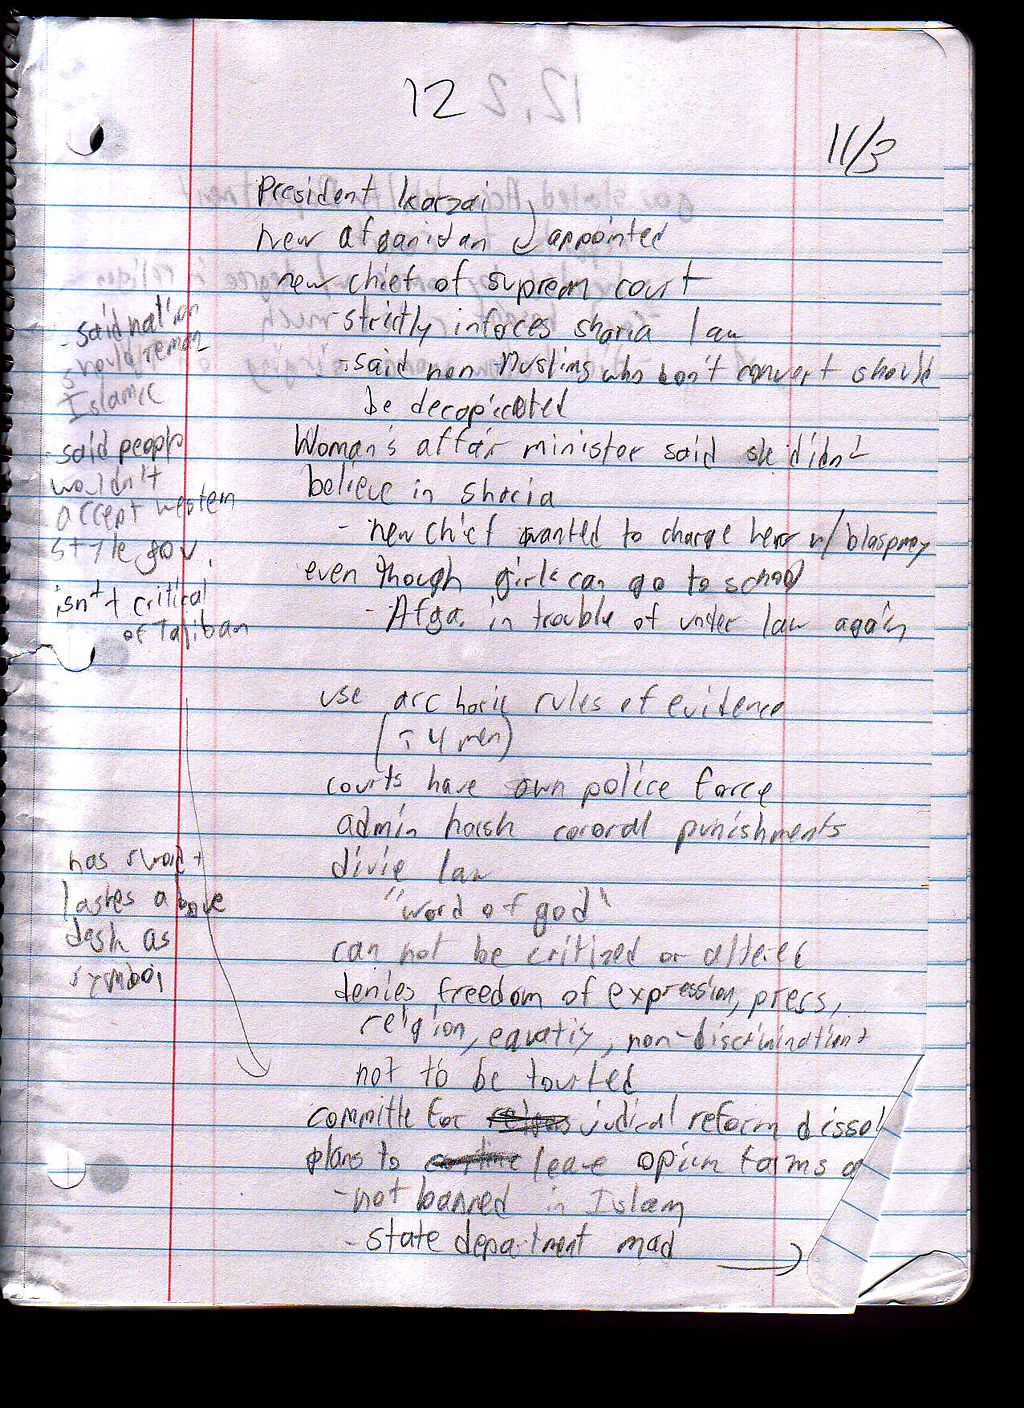 12
11/3
President Karzai
new afganistan appointed
new chief of suprem court
- strictly inforces sharia law
- said non Muslims who don't convert should
be decapicated
Woman's affair minister said she didn't
believe in sharia
- new chief wanted to charge her w/ blaspmey
even though girls can go to school
- Afga. in trouble of under law again
use archaric rules of evidence
( 4 men)
courts have own police force
admin harsh cororal punishments
divie law
"word of god"
can not be critized or altered
denies freedom of expression, press,
religion, equality, non-discrimination
not to be touted
committe for judical reform dissol
plans to leave opium farms
- not banned in Islam
- state department mad
- said nation
should remain
Islamic
- said people
wouldn't
accept western
style gov.
isn't critical
of Taliban
has sword +
lashes above
desk as
symbol